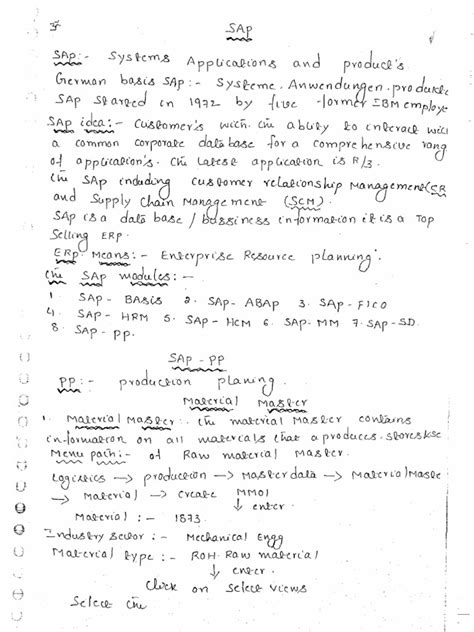 ॐ
SAP
SAP:- Systems Applications and product's
German basis SAP:- Systeme, Anwendungen, produkte
SAP started in 1972 by five former IBM employe
SAP idea:- Customer's with the ability to interact with
a common corporate database for a comprehensive rang
of application's. The latest application is R/3.
The SAP including customer relationship Management (CR
and Supply Chain Management (SCM).
SAP is a data base / bassiness information it is a Top
Selling ERP.
ERP Means:- Enterprise Resource planning.
The SAP modules:-
1. SAP- BASIS 2. SAP- ABAP 3. SAP- FICO
4. SAP- HRM 5. SAP- HCM 6. SAP- MM 7. SAP-SD.
8. SAP- PP.
SAP - PP
PP:- production planing.
Material Master
1. Material Master:. The material Master contains
information on all materials that a produces. stores
Menu path:- of Raw material Master.
Logistics → production → Master data → Material Maste
→ Material → create MM01
↓ enter
Material :- 1873
Industry sector :- Mechanical Engg
Material type :- ROH Raw material
↓ enter.
Click on select views
Select the